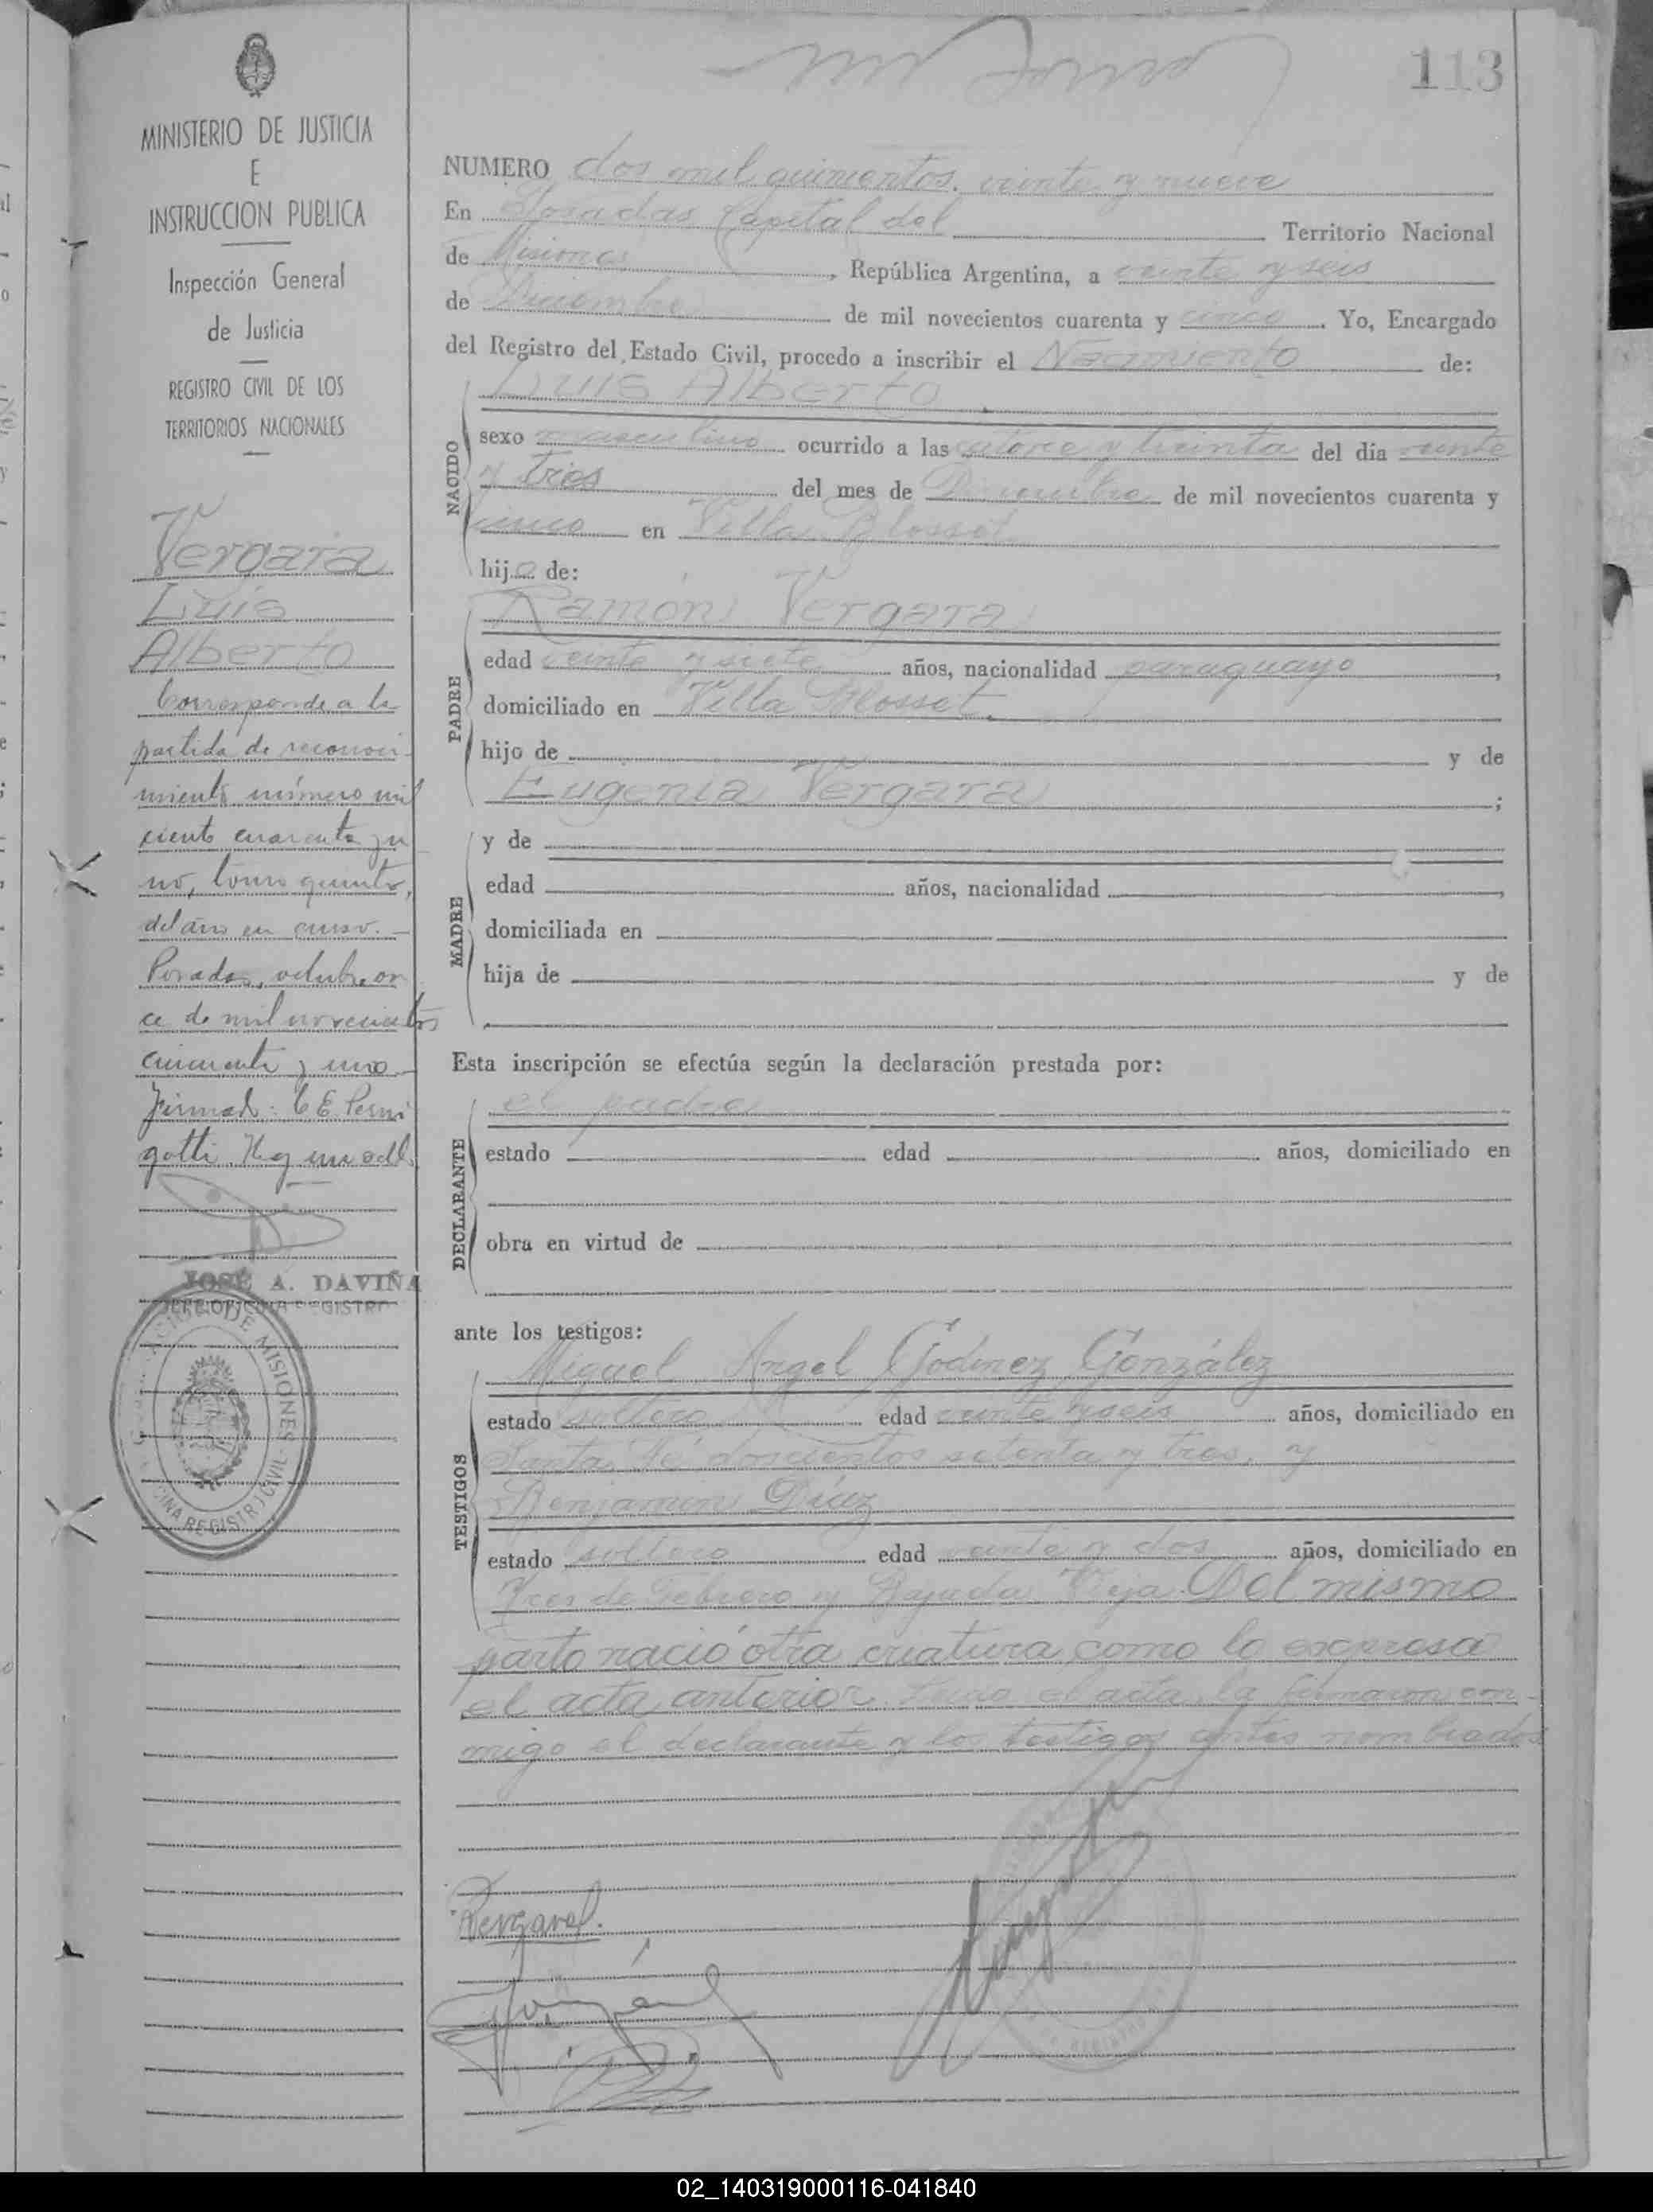 113
MINISTERIO DE JUSTICIA
E
INSTRUCCION PUBLICA
Inspección General
de Justicia
REGISTRO CIVIL DE LOS
TERRITORIOS NACIONALES
Vergara
Luis
Alberto
Corresponde a la
partida de reconoci-
miento número mil
ciento cuarenta y u
no, tomo quinto,
del año en curso.-
Posadas, octubre on
ce de mil novecientos
cincuenta y uno
Firmado: C E Perni
gotti
JOSÉ A. DAVIÑA
JEFE OFICINA REGISTRO
DE MISIONES
OFICINA REGISTRO CIVIL
NUMERO dos mil quinientos veinte y nueve
En Posadas Capital del Territorio Nacional
de Misiones, República Argentina, a veinte y seis
de Diciembre de mil novecientos cuarenta y cinco. Yo, Encargado
del Registro del Estado Civil, procedo a inscribir el Nacimiento de:
NACIDO
Luis Alberto
sexo masculino ocurrido a las catorce y treinta del día veinte
y tres del mes de Diciembre de mil novecientos cuarenta y
cinco en Villa Blosset
hijo de:
PADRE
Ramón Vergara
edad veinte y siete años, nacionalidad paraguayo,
domiciliado en Villa Blosset.
hijo de y de
Eugenia Vergara;
MADRE
y de
edad años, nacionalidad,
domiciliada en
hija de y de
Esta inscripción se efectúa según la declaración prestada por:
DECLARANTE
el padre
estado edad años, domiciliado en
obra en virtud de
ante los testigos:
TESTIGOS
Miguel Angel Godinez González
estado soltero edad veinte y seis años, domiciliado en
Santa Fé doscientos setenta y tres, y
Benjamin Díaz
estado soltero edad veinte y dos años, domiciliado en
Tres de Febrero y Bajada Vieja. Del mismo
parto nació otra criatura como lo expresa
el acta anterior. el acta, la firmaron con-
migo el declarante y los testigos antes nombrados
02_140319000116-041840